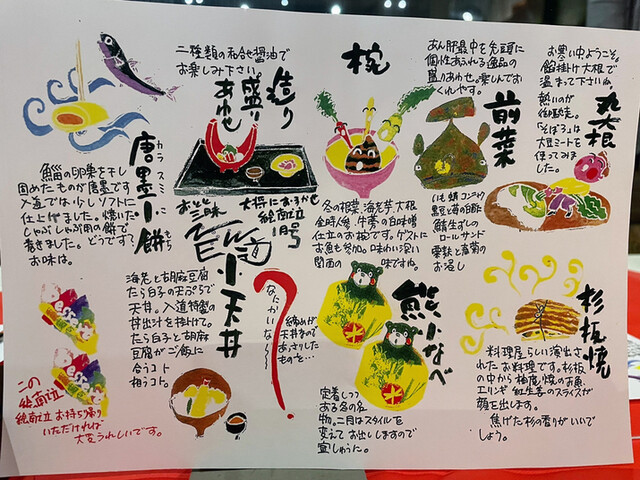 お寒い中、ようこそ。
餡掛け大根で
温まって下さいね。
熱いのが
御馳走。
「そぼろ」は
大豆ミートを
使ってみま
した。
丸大根
あん肝最中を先頭に
個性あふれる逸品の
盛りあわせ。楽しんでお
くれやす。
前菜
いも蛸コンニャク
黒豆と苺の白酢
鯖生ずしの
ロールサンド
栗麩と春菊の
お浸し
椀
冬の根菜、海老芋大根
金時人参、牛蒡の白味噌
仕立のお椀です。ゲストに
お魚も参加。味わい深い
関西の
味ですね。
二種類の和合せ醤油で
お楽しみ下さい。
造り
盛り
あわせ
おっと
三味
大将におまかせ
絵献立
1月号
唐墨餅
カラスミ
もち
鯔の卵巣を干し
固めたものが唐墨です
入道では少しソフトに
仕上げました。焼いた
しゃぶしゃぶ用の餅で
巻きました。どうです?
お味は。
杉板焼
料理屋らしい演出さ
れたお料理です。杉板
の中から柚庵焼のお魚、
エリンギ 紅生姜のスライスが
顔を出します。
焦げた杉の香りがいいで
しょう。
熊なべ
定着しつつ
ある名の名
物。二月はスタイルを
変えてお出ししますので
宜しゅうに。
?
なにかいな〜
締めが
天丼なので
あっさりした
ものを…
小天丼
海老と胡麻豆腐
たら白子の天ぷらで
天丼。入道特製の
丼出汁を掛けて。
たら白子と胡麻
豆腐がご飯に
合うコト
相うコト。
この
絵献立
絵献立お持ち帰り
いただければ
大変うれしいです。